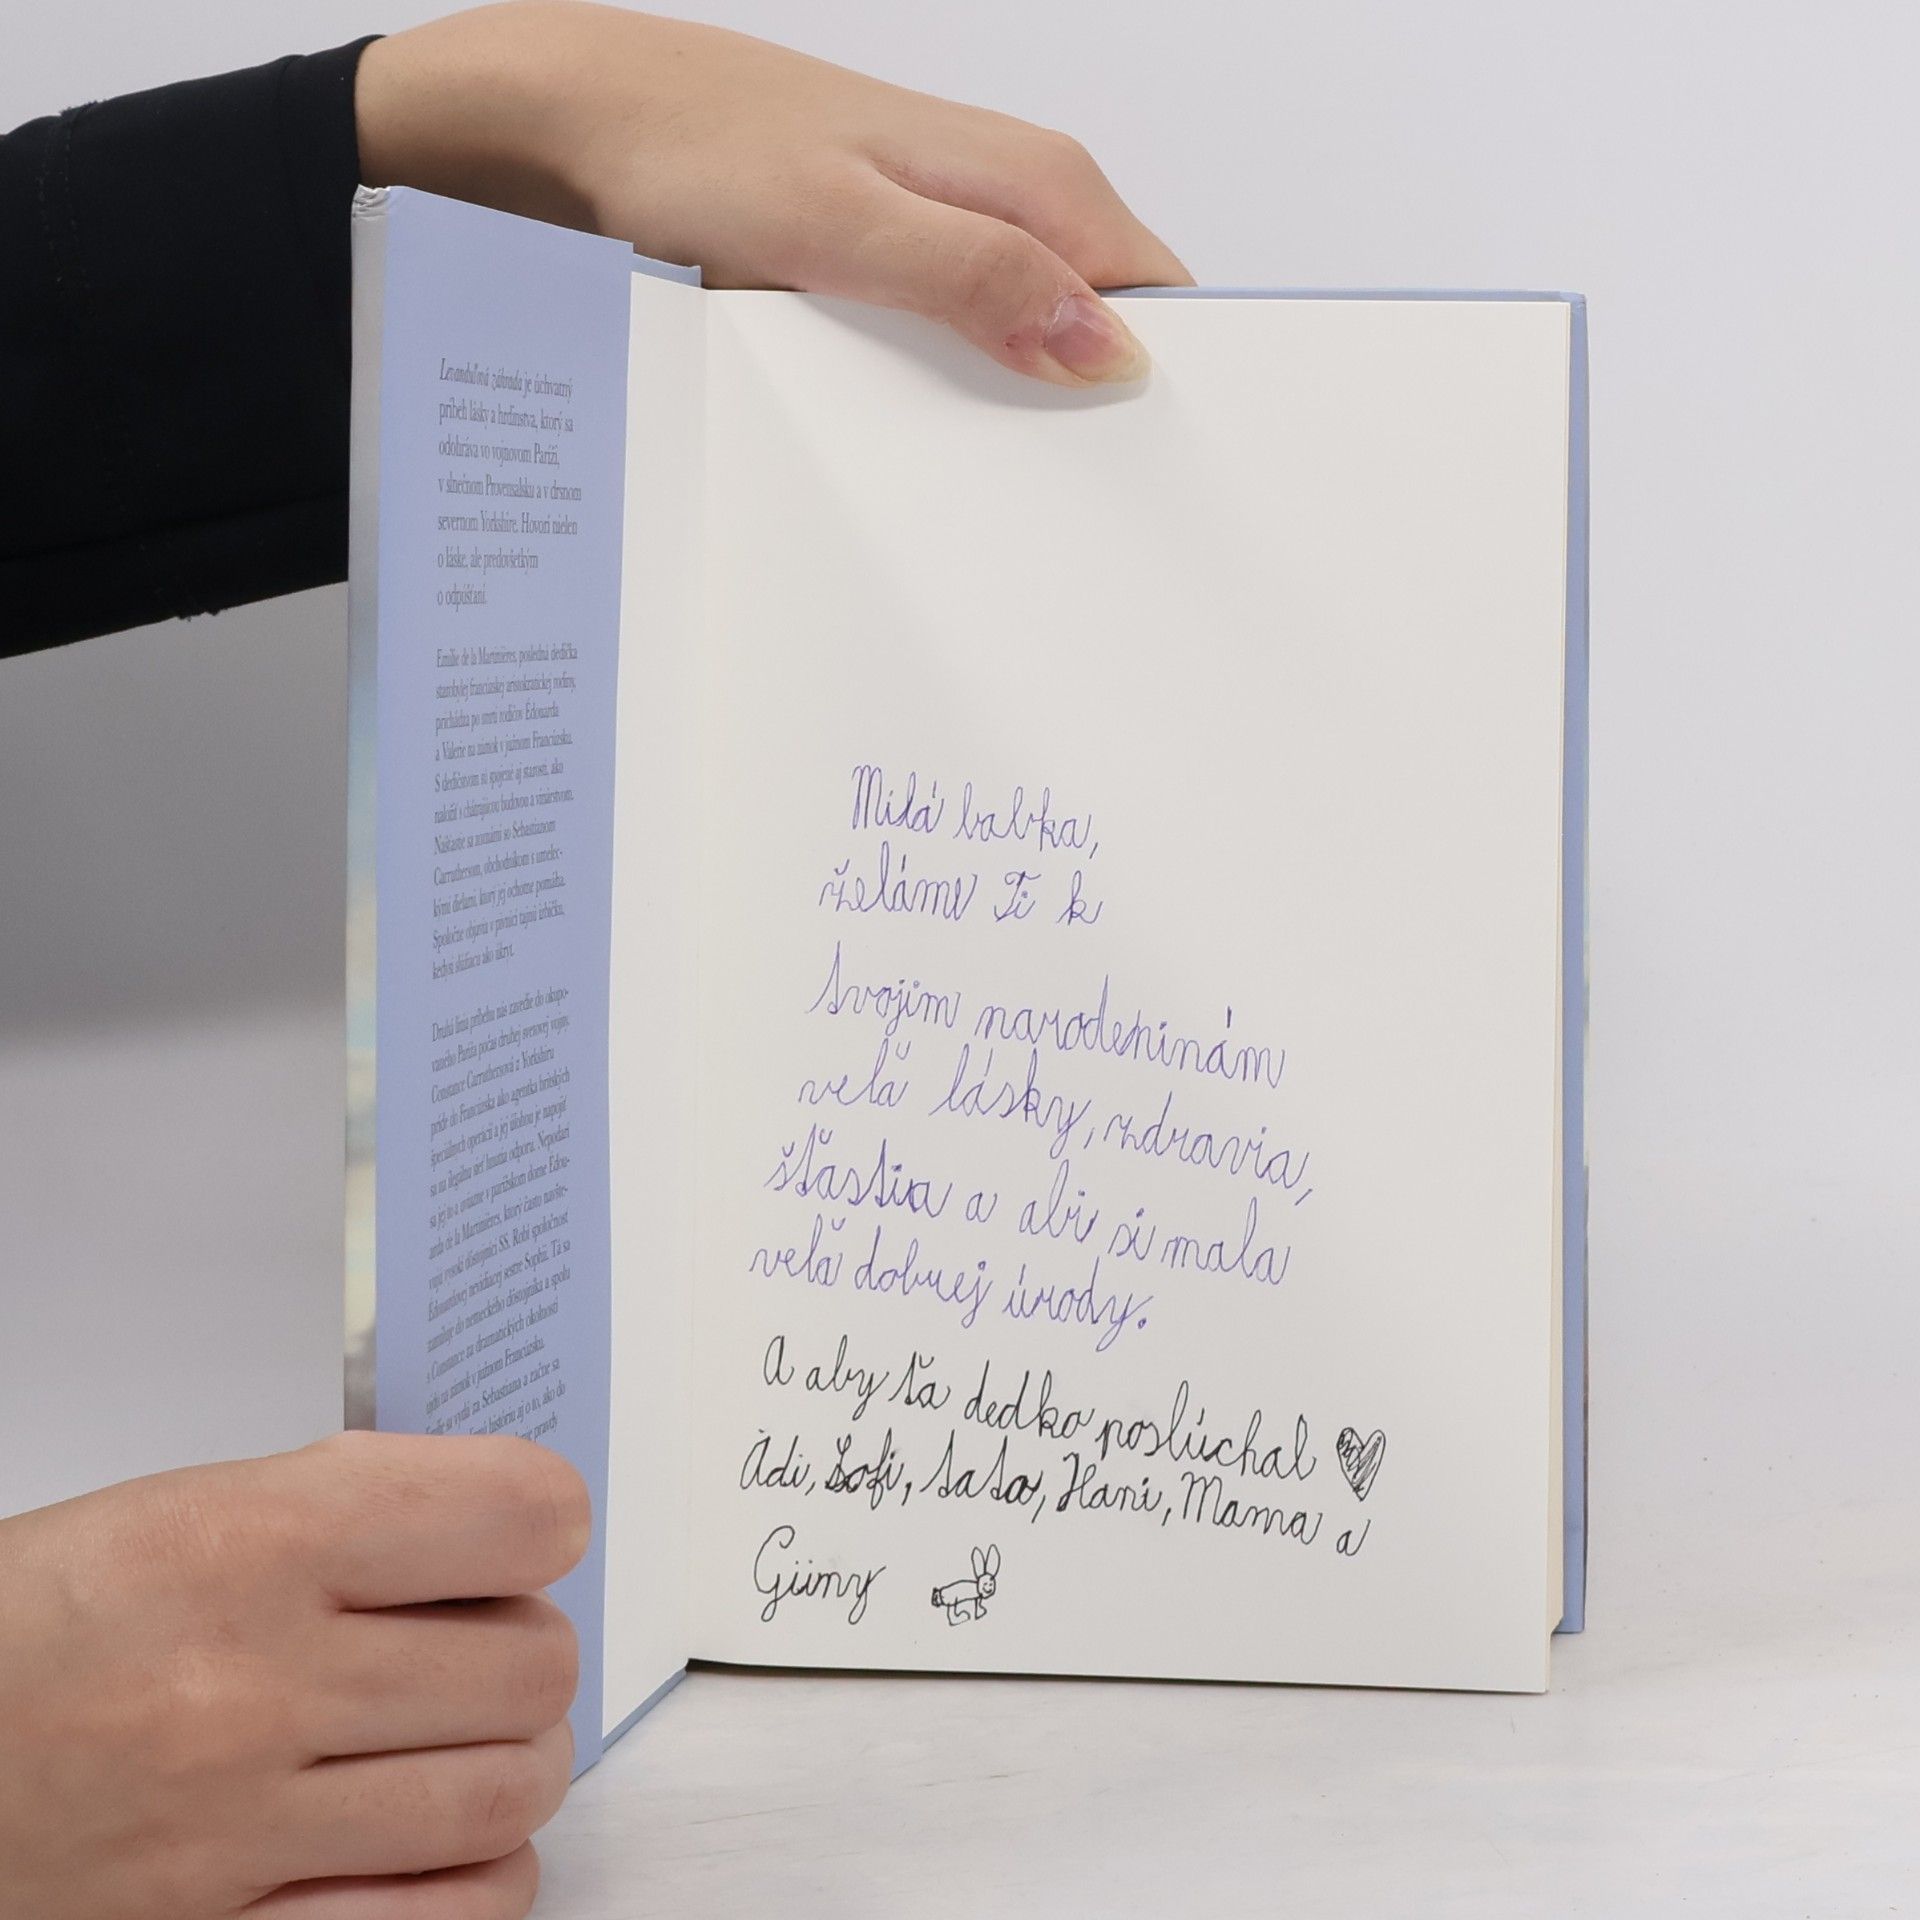 Levanduľová záhrada je úchvatný
príbeh lásky a hrdinstva, ktorý sa
odohráva vo vojnovom Paríži,
v slnečnom Provensalsku a v drsnom
severnom Yorkshire. Hovorí nielen
o láske, ale predovšetkým
o odpúšťaní.
Emilie de la Martinières, posledná dedička
starobylej francúzskej aristokratickej rodiny,
prichádza po smrti rodičov Édouarda
a Valerie na zámok v južnom Francúzsku.
S dedičstvom sú spojené aj starosti, ako
naložiť s chátrajúcou budovou a vinárstvom.
Našťastie sa zoznámi so Sebastianom
Carruthersom, obchodníkom s umelec-
kými dielami, ktorý jej ochotne pomáha.
Spoločne objavia v pivnici tajnú izbičku,
kedysi slúžiacu ako úkryt.
Druhá línia príbehu nás zavedie do okupo-
vaného Paríža počas druhej svetovej vojny.
Constance Carruthersová z Yorkshiru
príde do Francúzska ako agentka britských
špeciálnych operácií a jej úlohou je napojiť
sa na ilegálnu sieť hnutia odporu. Nepodarí
sa jej to a uviazne v parížskom dome Édou-
arda de la Martinières, ktorý často navšte-
vujú vysokí dôstojníci SS. Robí spoločnosť
Édouardovej nevidiacej sestre Sophii. Tá sa
zamiluje do nemeckého dôstojníka a spolu
s Constance za dramatických okolností
ujdú na zámok v južnom Francúzsku.
sa vydá za Sebastiana a začne sa
históriu aj o to, ako do
pravdy
Milá babka,
želáme Ti k
tvojim narodeninám
veľa lásky, zdravia,
šťastia a abi si mala
veľa dobrej úrody.
A aby ťa dedko poslúchal
Ádi, Sofi, tato, Hani, Mama a
Güny